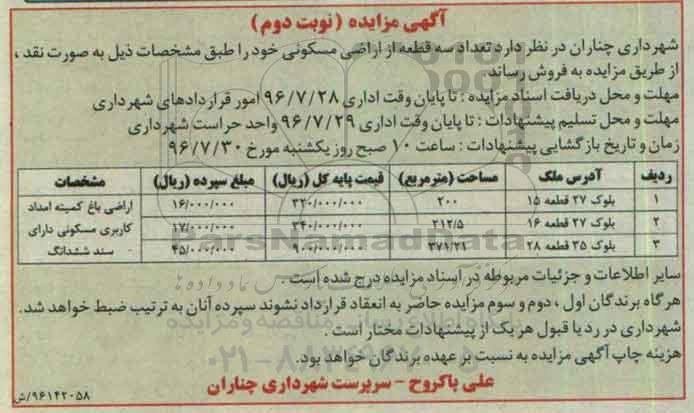 آگهی مزایده (نوبت دوم)
شهرداری چناران در نظر دارد تعداد سه قطعه از اراضی مسکونی خود را طبق مشخصات ذیل به صورت نقد ،
از طریق مزایده به فروش رساند.
مهلت و محل دریافت اسناد مزایده : تا پایان وقت اداری ۹۶/۷/۲۸ امور قراردادهای شهرداری
مهلت و محل تسلیم پیشنهادات : تا پایان وقت اداری ۹۶/۷/۲۹ واحد حراست شهرداری
زمان و تاریخ بازگشایی پیشنهادات : ساعت ۱۰ صبح روز یکشنبه مورخ ۹۶/۷/۳۰
ردیف آدرس ملک مساحت (مترمربع) قیمت پایه کل (ریال) مبلغ سپرده (ریال) مشخصات
۱ بلوک ۲۷ قطعه ۱۵ ۲۰۰ ۳۲۰/۰۰۰/۰۰۰ ۱۶/۰۰۰/۰۰۰ اراضی باغ کمیته امداد
۲ بلوک ۲۷ قطعه ۱۶ ۲۱۲/۵ ۳۴۰/۰۰۰/۰۰۰ ۱۷/۰۰۰/۰۰۰ کاربری مسکونی دارای
۳ بلوک ۳۵ قطعه ۲۸ ۳۷۱/۲۱ ۹۰۰/۰۰۰/۰۰۰ ۴۵/۰۰۰/۰۰۰ سند ششدانگ
ParsNamadData
سایر اطلاعات و جزئیات مربوطه در اسناد مزایده درج شده است .
هرگاه برندگان اول ، دوم و سوم مزایده حاضر به انعقاد قرارداد نشوند سپرده آنان به ترتیب ضبط خواهد شد.
شهرداری در رد یا قبول هر یک از پیشنهادات مختار است .
هزینه چاپ آگهی مزایده به نسبت بر عهده برندگان خواهد بود.
علی پاکروح - سرپرست شهرداری چناران
۹۶۱۴۲۰۵۸/ش